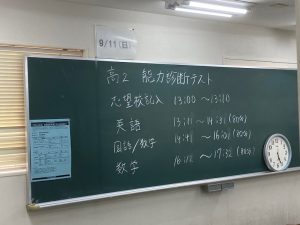 9/11(日)
高2 能力診断テスト
志望校記入 13:00 〜13:10
英語 13:11 〜 14:31 (80分)
国語/数学 14:41 〜 16:01 (80分)
数学 16:12 〜 17:32 (80分)